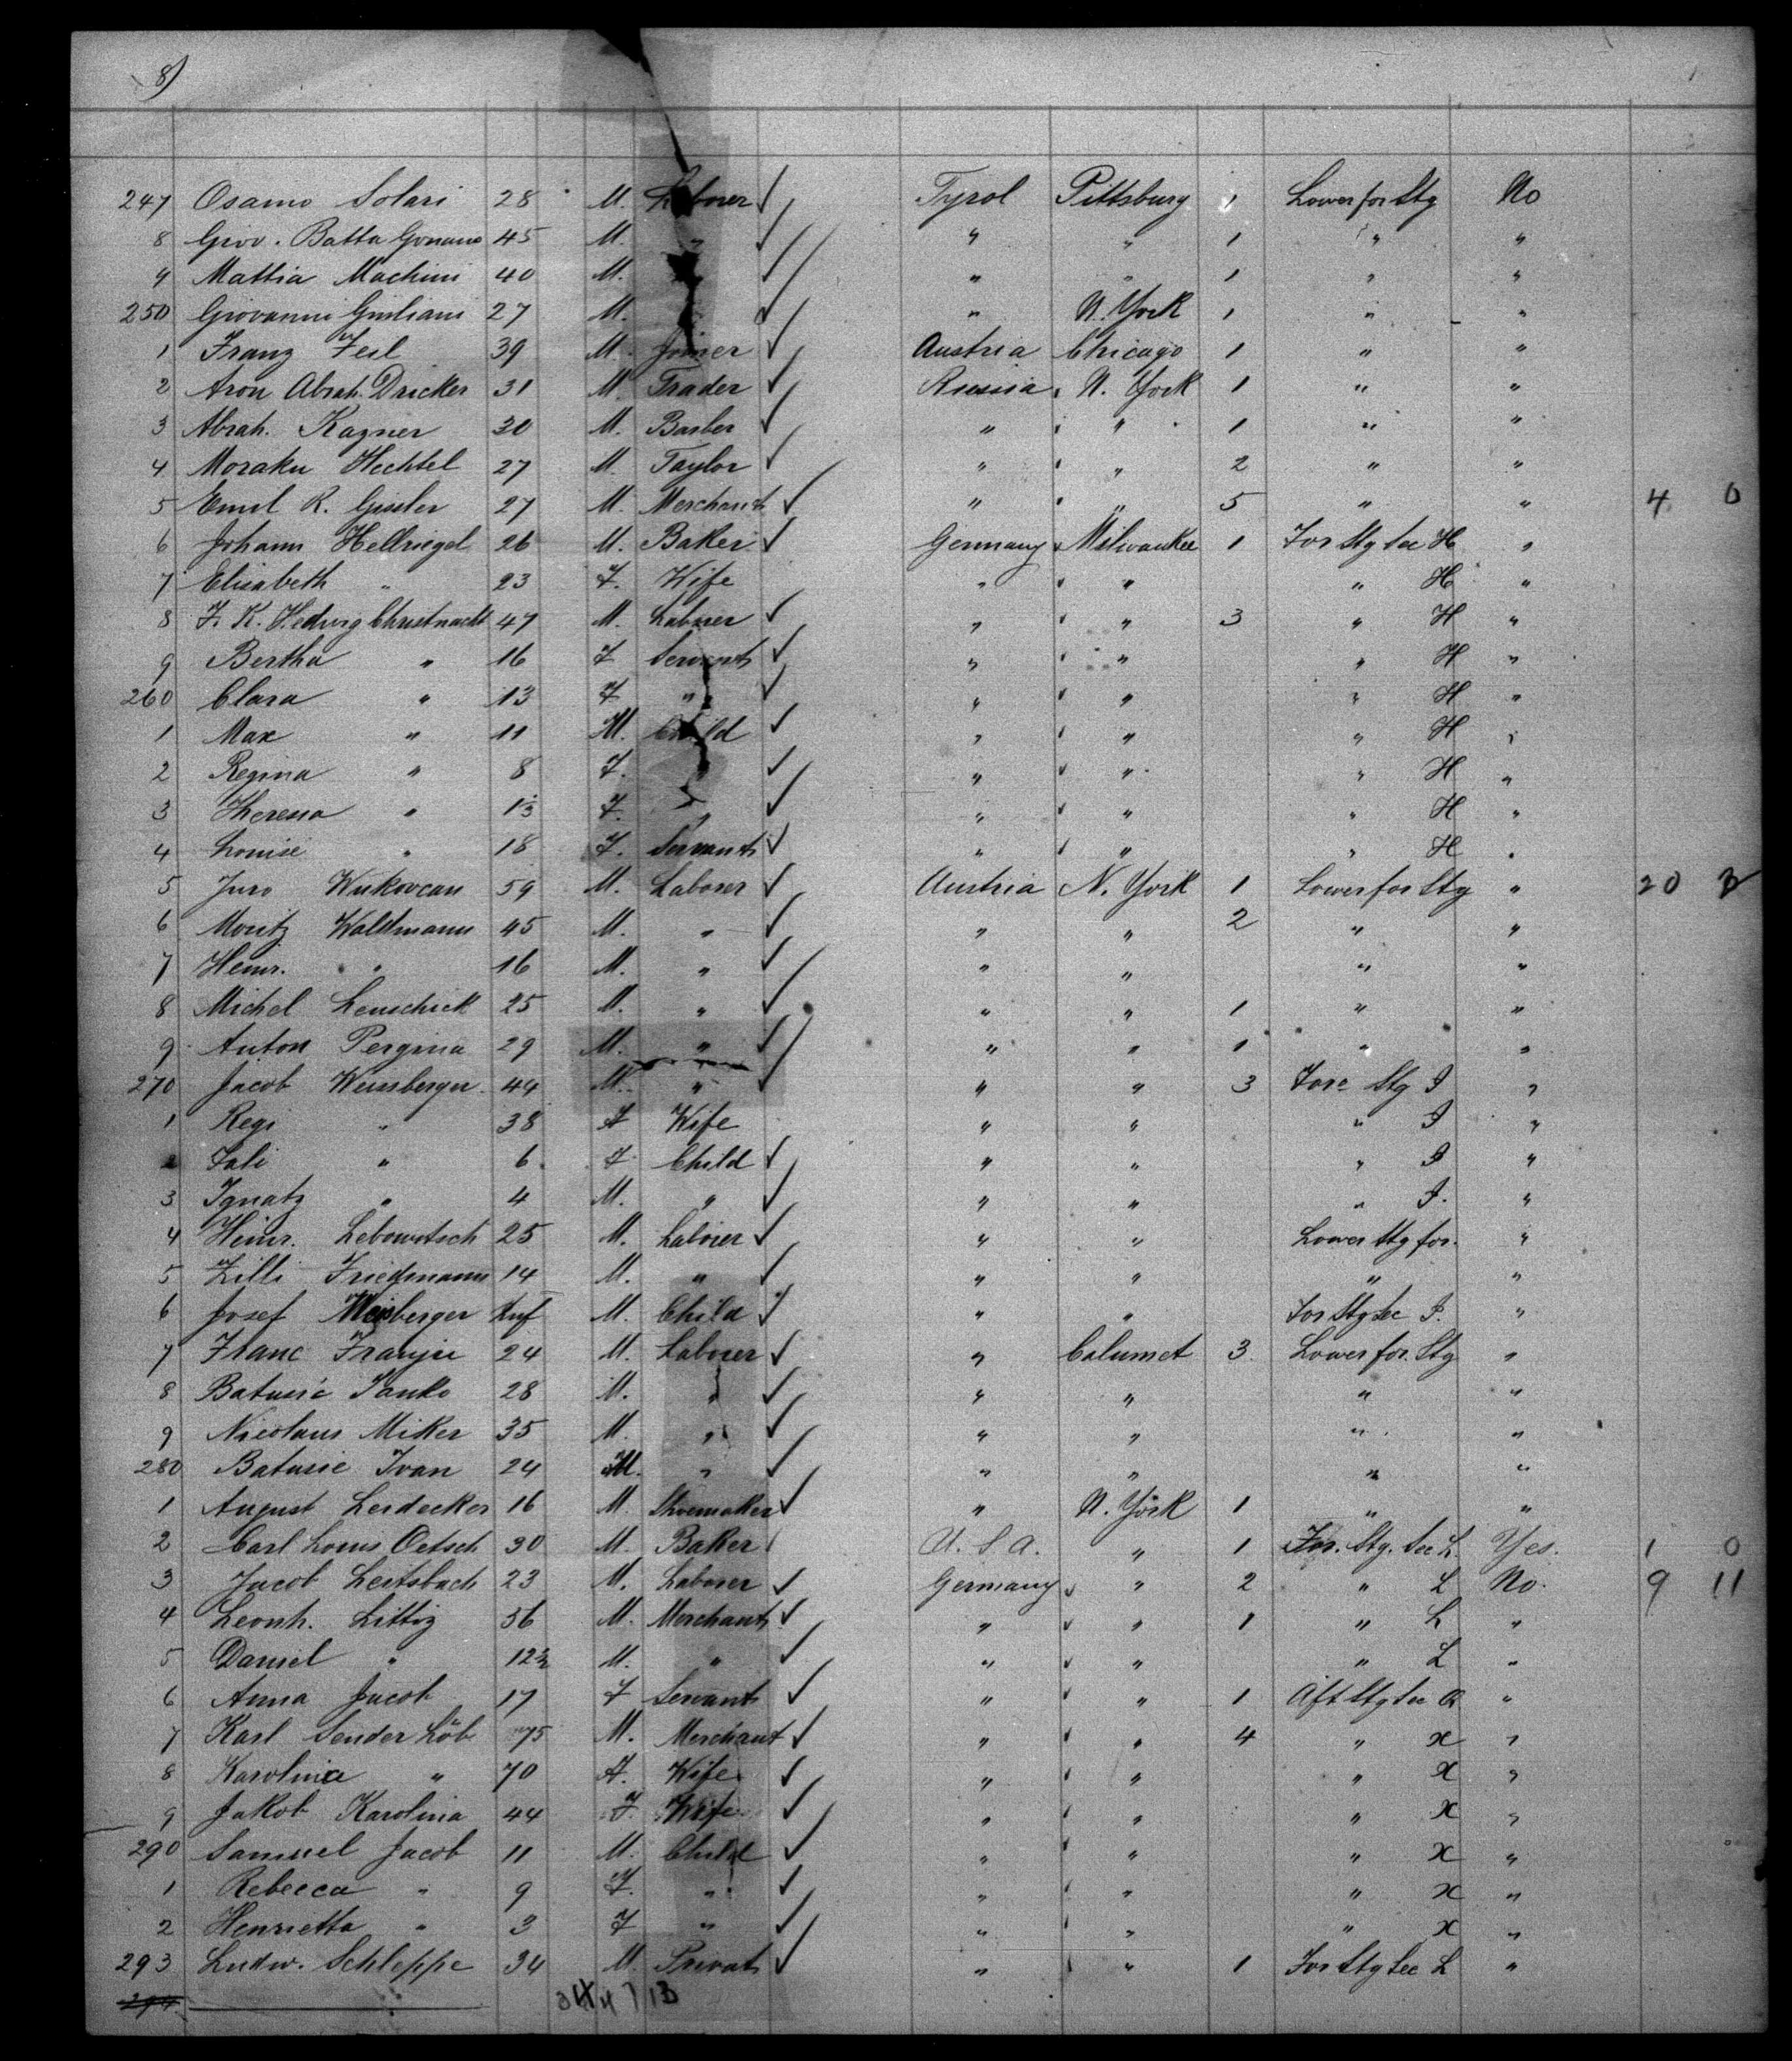 8)
247 Osamo Solari 28 M. Laborer ✓ Tyrol Pittsburg 1 Lower for Stg No
8 Giov. Batta Gonano 45 M. " ✓ " " 1 " "
9 Mattia Machini 40 M. ✓ " " 1 " "
250 Giovanni Giuliani 27 M. ✓ " N. York 1 " "
1 Franz Zesl 39 M. Joiner ✓ Austria Chicago 1 " "
2 Aron Abrah. Drucker 31 M. Trader ✓ Russia N. York 1 " "
3 Abrah. Kagner 30 M. Barber ✓ " " 1 " "
4 Moraku Hechtel 27 M. Taylor ✓ " " 2 " "
5 Emil R. Gissler 27 M. Merchant ✓ " " 5 " " 4 0
6 Johann Hellriegel 26 M. Baker ✓ Germany Milwaukee 1 For Stg Sec H "
7 Elisabeth " 23 F. Wife " " " H "
8 F. K. Hedwig Christnacht 47 M. Laborer ✓ " " 3 " H "
9 Bertha " 16 F Servant ✓ " " " H "
260 Clara " 13 F " ✓ " " " H "
1 Max " 11 M. Child ✓ " " " H "
2 Regina " 8 F. ✓ " " " H "
3 Theresa " F. " ✓ " " " H "
4 Louise " 18 F. Servant ✓ " " " H "
5 Juro Wukovcan 59 M. Laborer ✓ Austria N. York 1 Lower for Stg " 20
6 Moritz Waldmann 45 M. " ✓ " " 2 " "
7 Heinr. " 16 M. " ✓ " " " "
8 Michel Leuschick 25 M. " ✓ " " 1 " "
9 Anton Pergina 29 M. " ✓ " " 1 " "
270 Jacob Weissberger 44 M. " ✓ " " 3 Fore Stg I "
1 Regi " 38 F Wife " " " I "
2 Tali " 6 F Child ✓ " " " I "
3 Ignatz " 4 M. " ✓ " " " I. "
4 Heinr. Lebowitsch 25 M. Laborer ✓ " " Lower Stg for. "
5 Zilli Friedmann 14 M. " ✓ " " " "
6 Josef Weisberger Inf M. Child ✓ " " For Stg Sec I. "
7 Franc Franjic 24 M. Laborer ✓ " Calumet 3 Lower for. Stg "
8 Batusic Janko 28 M. " ✓ " " " "
9 Nicolaus Miker 35 M. " ✓ " " " "
280 Batusic Ivan 24 M. " ✓ " " " "
1 August Lerdecker 16 M Shoemaker ✓ " N. York 1 " "
2 Carl Louis Oetsch 30 M. Baker U. S. A. " 1 For. Stg. Sec L. Yes. 1 0
3 Jacob Leitsbach 23 M. Laborer ✓ Germany " 2 " L No. 9 11
4 Leonh. Littig 56 M. Merchant ✓ " " 1 " L "
5 Daniel " 12½ M. " ✓ " " " L "
6 Anna Jacob 17 F Servant ✓ " " 1 Aft Stg Sec Q "
7 Karl Sender Löb 75 M. Merchant ✓ " " 4 " X "
8 Karolina " 70 F. Wife ✓ " " " X "
9 Jakob Karolina 44 F. Wife ✓ " " " X "
290 Samuel Jacob 11 M. Child ✓ " " " X "
1 Rebecca " 9 F. " ✓ " " " X "
2 Henrietta " 3 F " ✓ " " " X "
293 Ludw. Schleppe 34 M. Privat ✓ " " 1 For Stg Sec L "
294